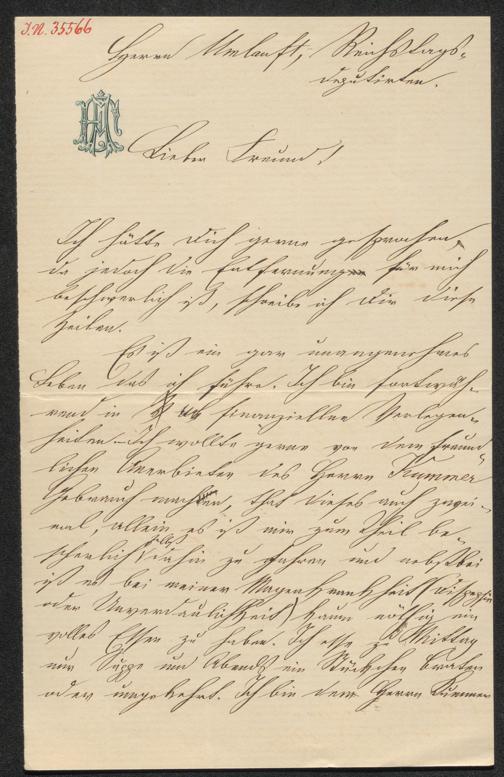 J.N. 35566
Herrn Umlauft, Reichstags-
deputirten.
Lieber Freund!
Ich hätte Dich gerne gesprochen,
da jedoch die Entfernung für mich
beschwerlich ist, schreibe ich Dir diese
Zeilen.
Es ist ein gar unangenehmes
Leben das ich führe. Ich bin fortwäh-
rend in finanziellen Verlegen-
heiten. Ich wollte gerne von dem freund-
lichen Anerbieten des Herrn Kummer
Gebrauch machen, that dieses auch zwei-
mal, allein es ist mir zum Theil be-
schwerlich dahin zu fahren und nebstbei
ist es bei meiner Magenkrankheit (Dispepsie
oder Unverdaulichkeit) kaum nöthig ein
volles Essen zu haben. Ich esse zu Mittag
nur Suppe und Abends ein Stückchen Braten
oder umgekehrt. Ich bin dem Herrn Kummer